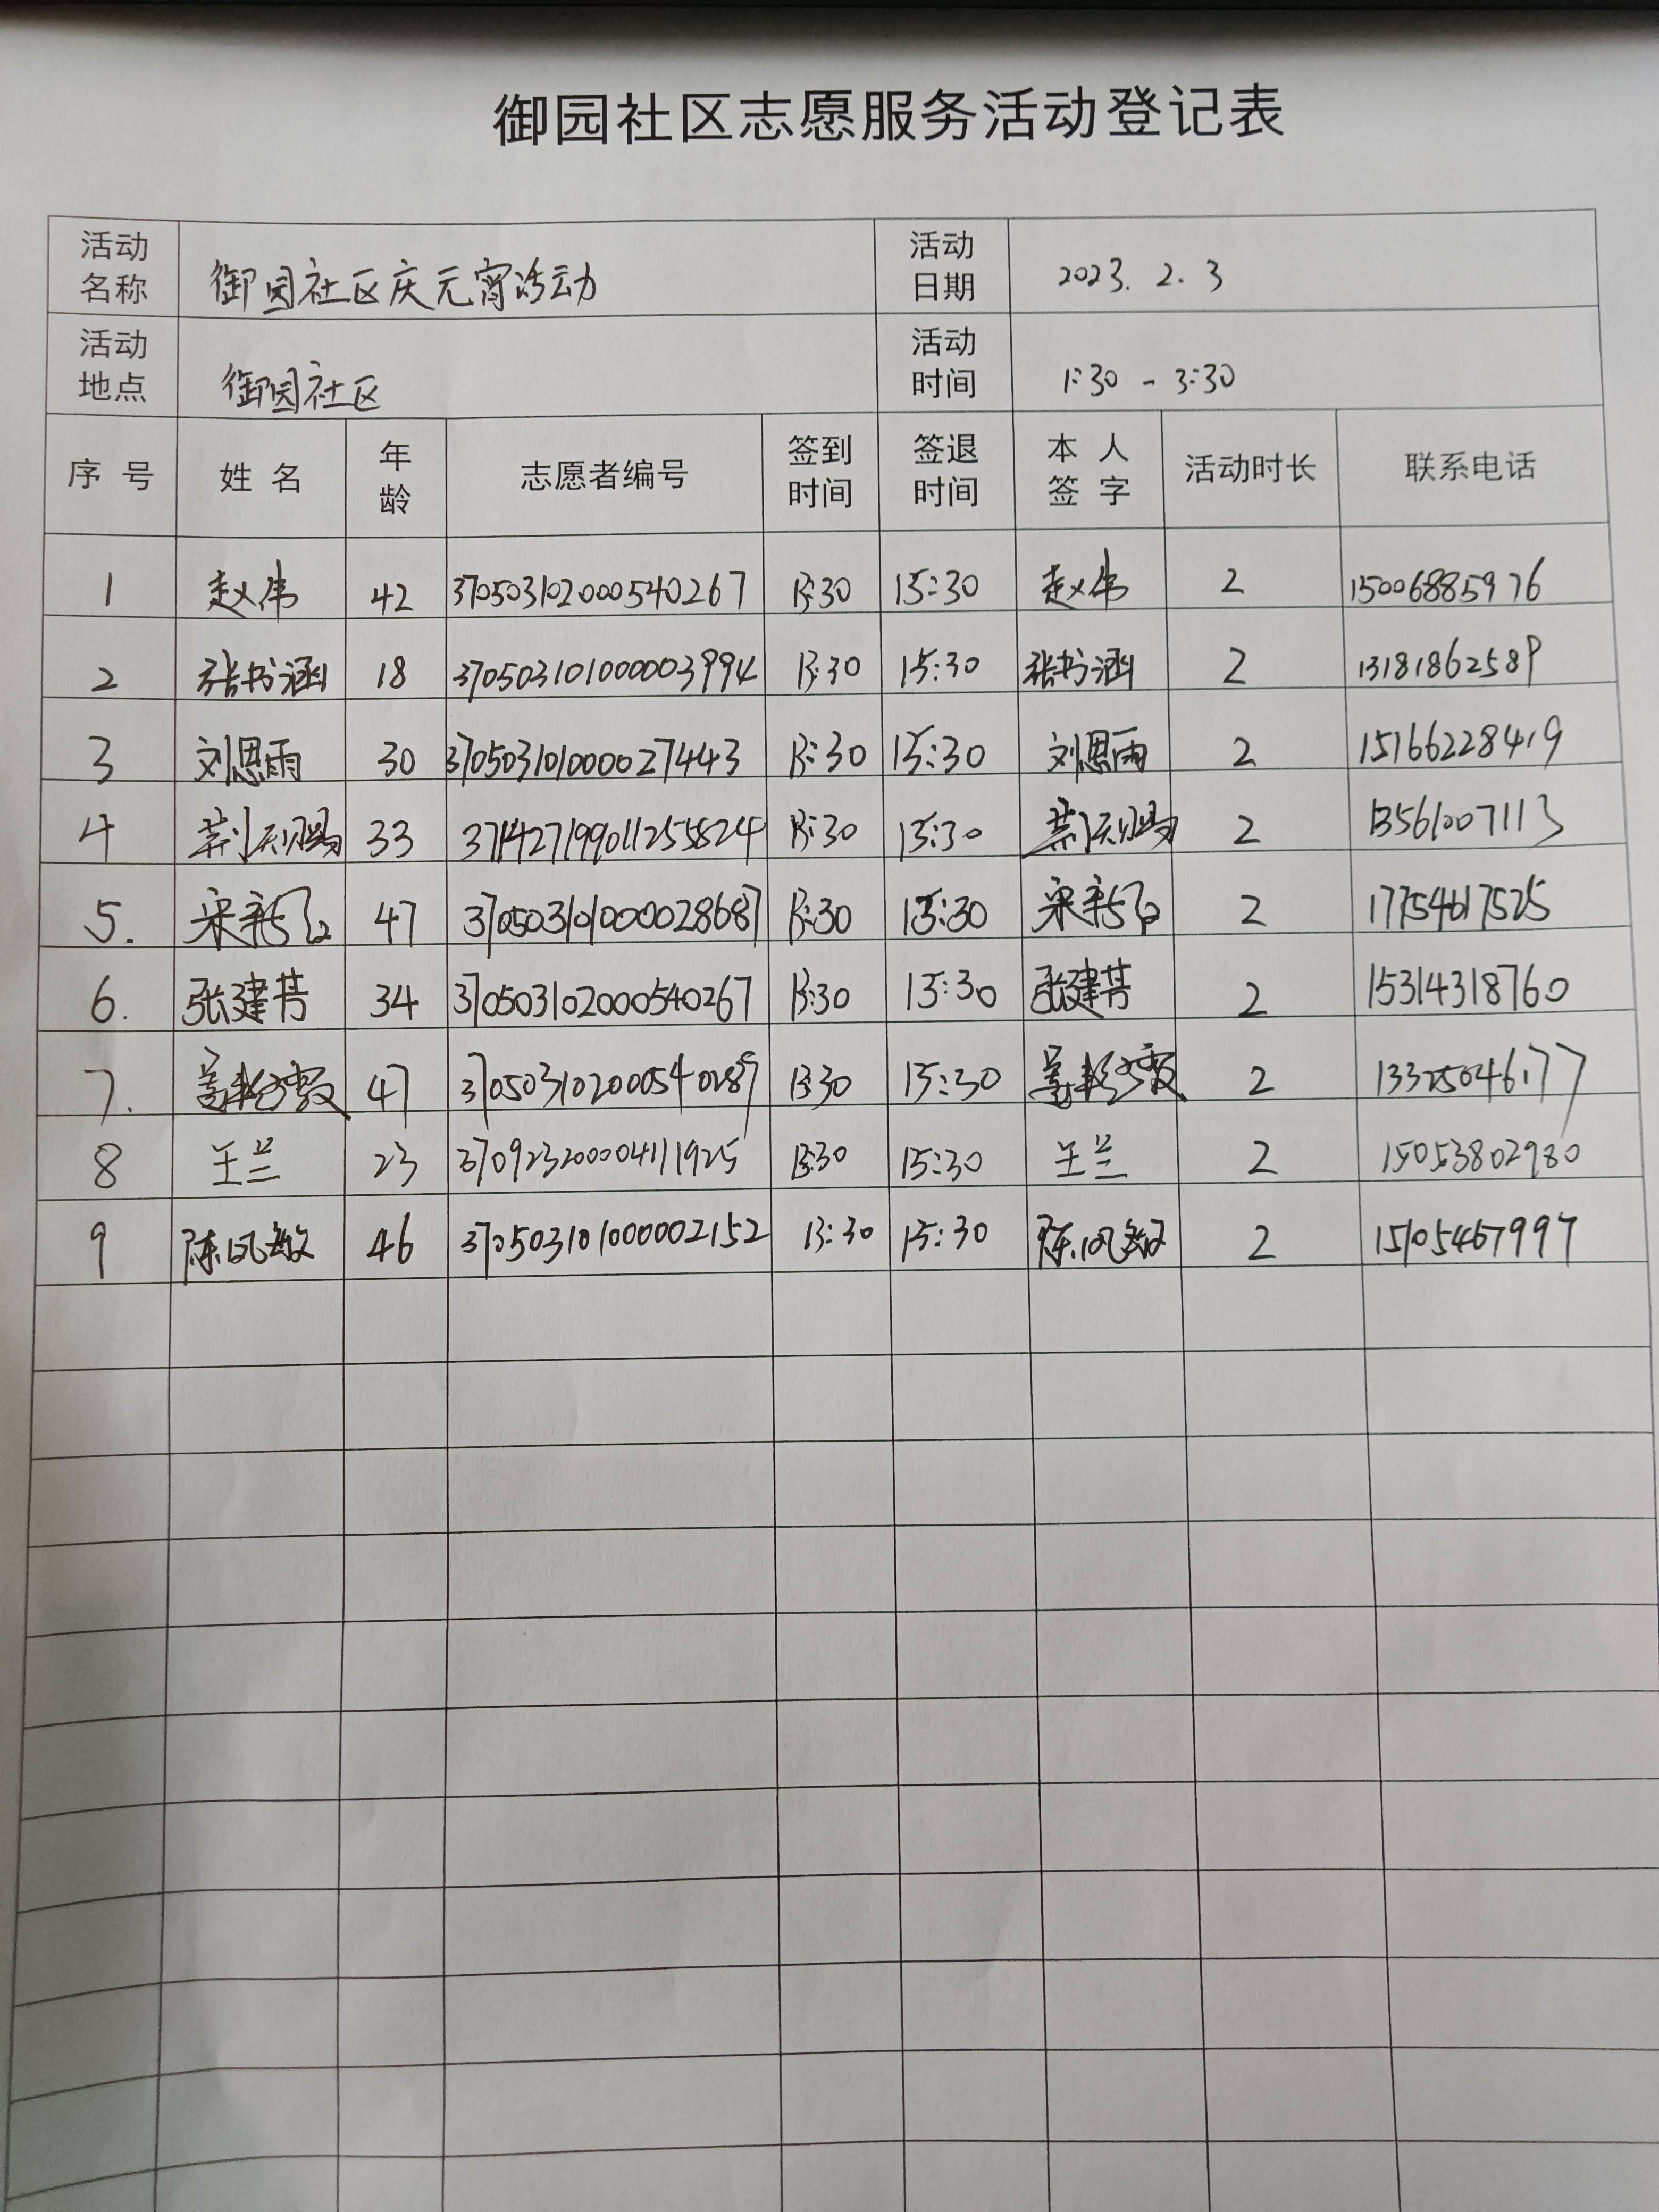 御园社区志愿服务活动登记表
活动名称 御园社区庆元宵活动 活动日期 2023. 2. 3
活动地点 御园社区 活动时间 1:30 - 3:30
序号 姓名 年龄 志愿者编号 签到时间 签退时间 本人签字 活动时长 联系电话
1 赵伟 42 370503102000540267 13:30 15:30 赵伟 2 15006885976
2 张书涵 18 370503101000003994 13:30 15:30 张书涵 2 13181862589
3 刘思雨 30 370503101000027443 13:30 15:30 刘思雨 2 15166228419
4 荆天赐 33 371427199011255824 13:30 15:30 荆天赐 2 13561007113
5. 宋新 47 370503101000028687 13:30 15:30 宋新 2 17754617525
6. 张建芳 34 370503102000540267 13:30 15:30 张建芳 2 15314318760
7. 47 370503102000540287 13:30 15:30 2 13325046177
8 王兰 23 370923200004111925 13:30 15:30 王兰 2 15053802980
9 陈凤敏 46 370503101000002152 13:30 15:30 陈凤敏 2 15105467997